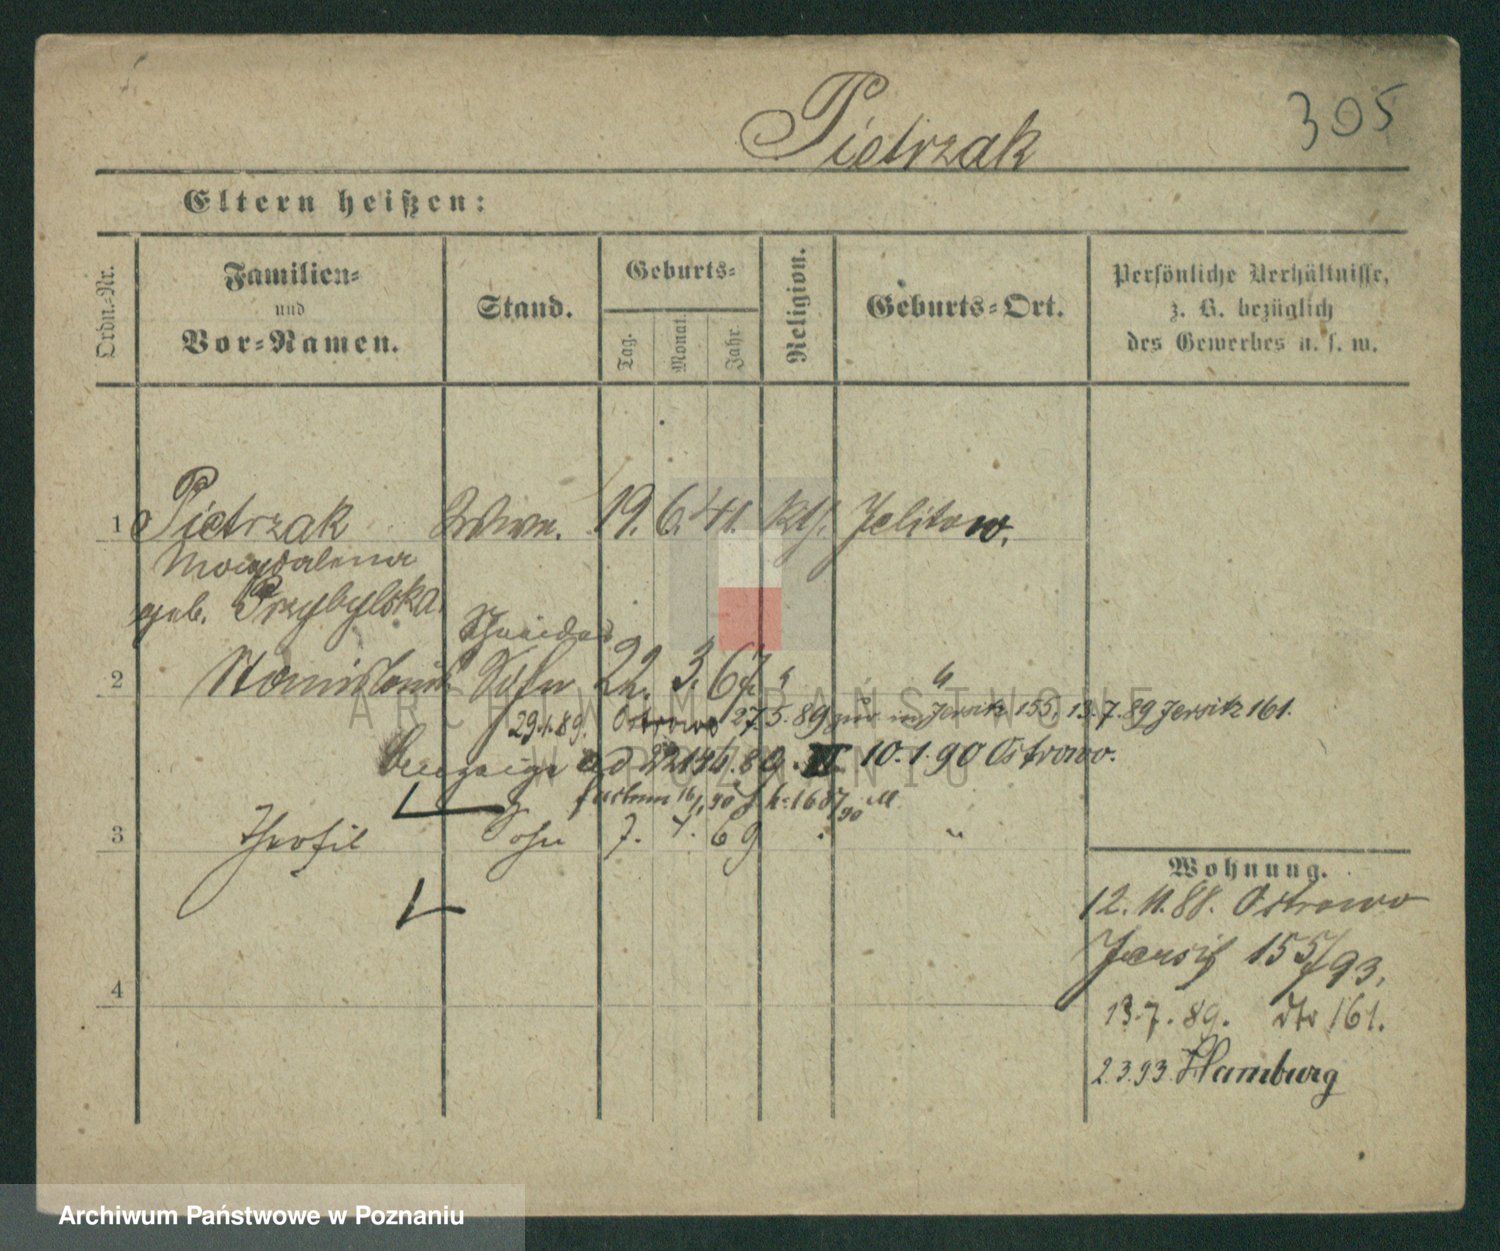 Pietrzak
305
Eltern heißen:
Ordn.-Nr.
Familien-
und
Vor-Namen.
Stand.
Geburts-
Tag.
Monat.
Jahr
Religion.
Geburts-Ort.
Persönliche Verhältnisse,
z. B. bezüglich
des Gewerbes u. s. w.
1 Pietrzak Wwe. 19. 6. 41. kth. Jelitow.
Magdalena
geb. Przybylska.
Schneider
2 Stanislaus Sohn 22. 3. 67. " "
29.1.89. Ostrowo 27.5.89 Jersitz 155, 13.7.89 Jersitz 161.
10.1.90 Ostrowo.
3 Theofil Sohn 7. 4. 69 "
4
Wohnung.
12.11.88. Ostrowo
Jersitz 155/93.
13.7.89. dto 161.
2.3.93 Hamburg
ARCHIWUM PAŃSTWOWE
W POZNANIU
Archiwum Państwowe w Poznaniu